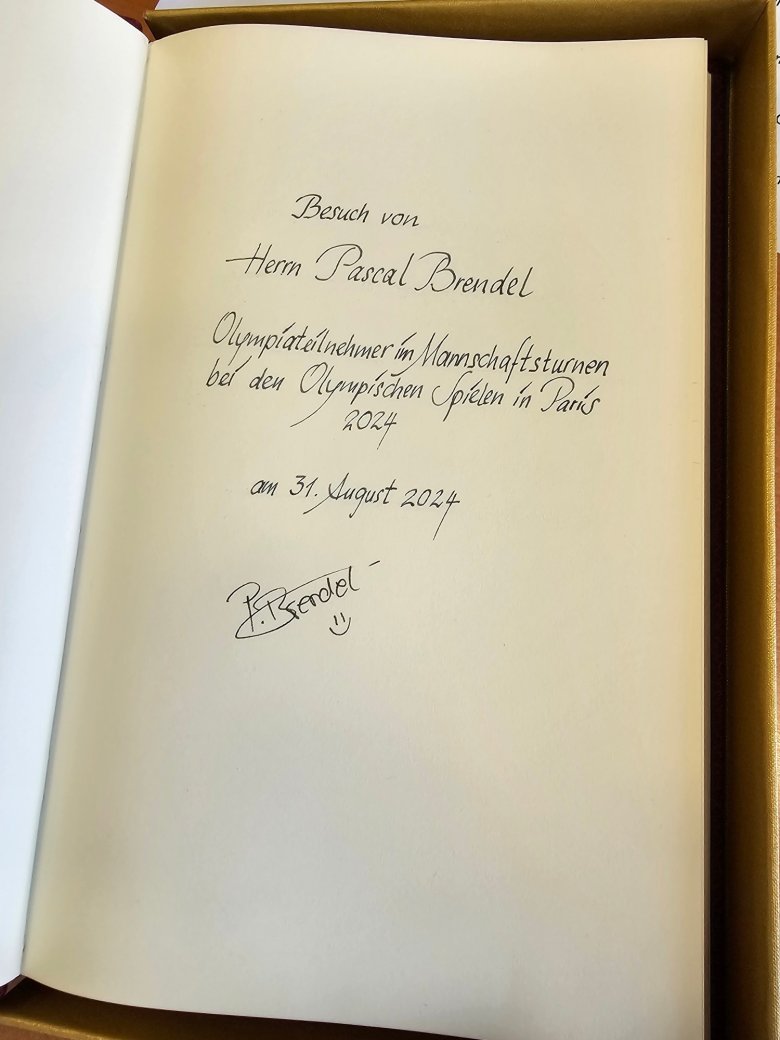 Besuch von
Herrn Pascal Brendel
Olympiateilnehmer im Mannschaftsturnen
bei den Olympischen Spielen in Paris
2024
am 31. August 2024
P. Brendel